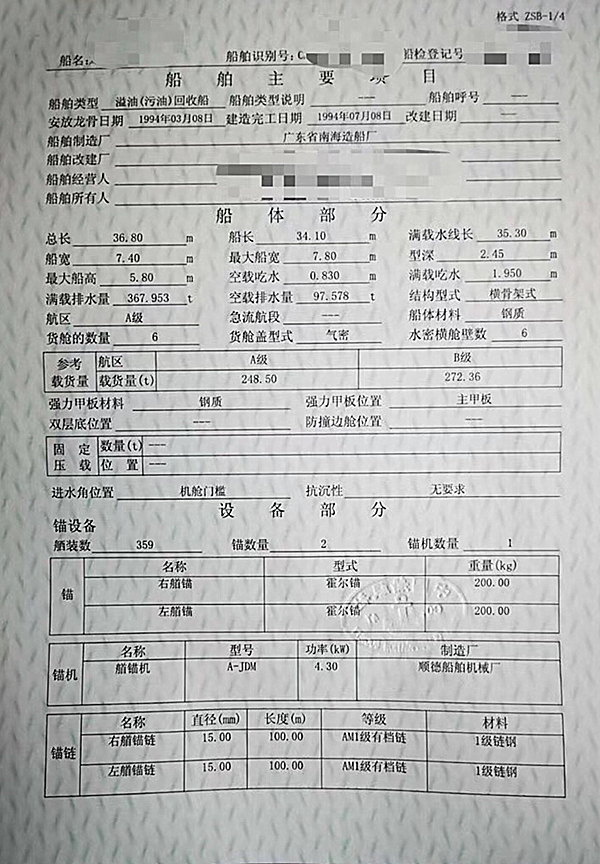 格式 ZSB-1/4
船名: 船舶识别号:C 船检登记号
船舶主要项目
船舶类型 溢油(污油)回收船 船舶类型说明 --- 船舶呼号 ---
安放龙骨日期 1994年03月08日 建造完工日期 1994年07月08日 改建日期 ---
船舶制造厂 广东省南海造船厂
船舶改建厂
船舶经营人
船舶所有人
船体部分
总长 36.80 m 船长 34.10 m 满载水线长 35.30 m
船宽 7.40 m 最大船宽 7.80 m 型深 2.45 m
最大船高 5.80 m 空载吃水 0.830 m 满载吃水 1.950 m
满载排水量 367.953 t 空载排水量 97.578 t 结构型式 横骨架式
航区 A级 急流航段 --- 船体材料 钢质
货舱的数量 6 货舱盖型式 气密 水密横舱壁数 6
参考载货量 航区 A级 B级
载货量(t) 248.50 272.36
强力甲板材料 钢质 强力甲板位置 主甲板
双层底位置 --- 防撞边舱位置 ---
固定压载 数量(t) ---
位置 ---
进水角位置 机舱门槛 抗沉性 无要求
设备部分
锚设备
舾装数 359 锚数量 2 锚机数量 1
锚 名称 型式 重量(kg)
右艏锚 霍尔锚 200.00
左艏锚 霍尔锚 200.00
锚机 名称 型号 功率(kW) 制造厂
艏锚机 A-JDM 4.30 顺德船舶机械厂
锚链 名称 直径(mm) 长度(m) 等级 材料
右艏锚链 15.00 100.00 AM1级有档链 1级链钢
左艏锚链 15.00 100.00 AM1级有档链 1级链钢